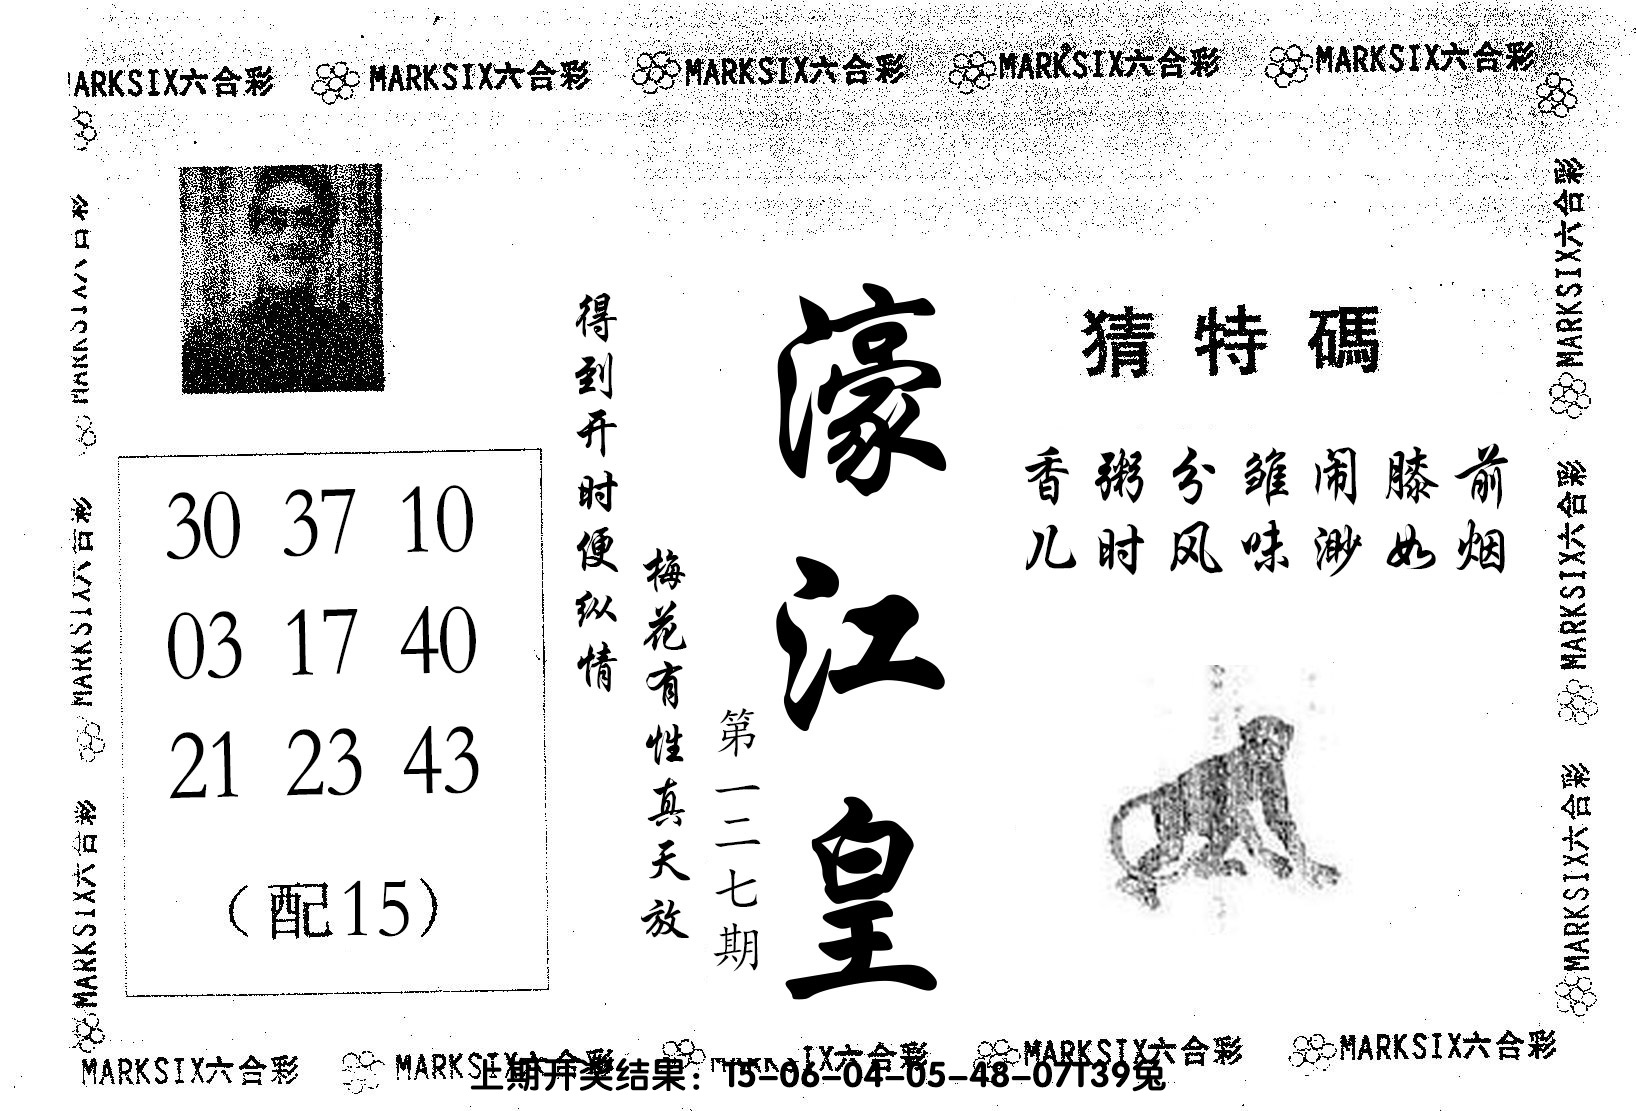 MARKSIX六合彩 MARKSIX六合彩 MARKSIX六合彩 MARKSIX六合彩 MARKSIX六合彩
MARKSIX六合彩
MARKSIX六合彩
MARKSIX六合彩
得到开时便纵情
梅花有性真天放
第一二七期
濠江皇
猜特碼
香粥分雏闹膝前
儿时风味渺如烟
30 37 10
03 17 40
21 23 43
（配15）
MARKSIX六合彩
MARKSIX六合彩
MARKSIX六合彩
MARKSIX六合彩 MARKSIX六合彩 IX六合彩 MARKSIX六合彩 MARKSIX六合彩
上期开奖结果：15-06-04-05-48-07T39兔